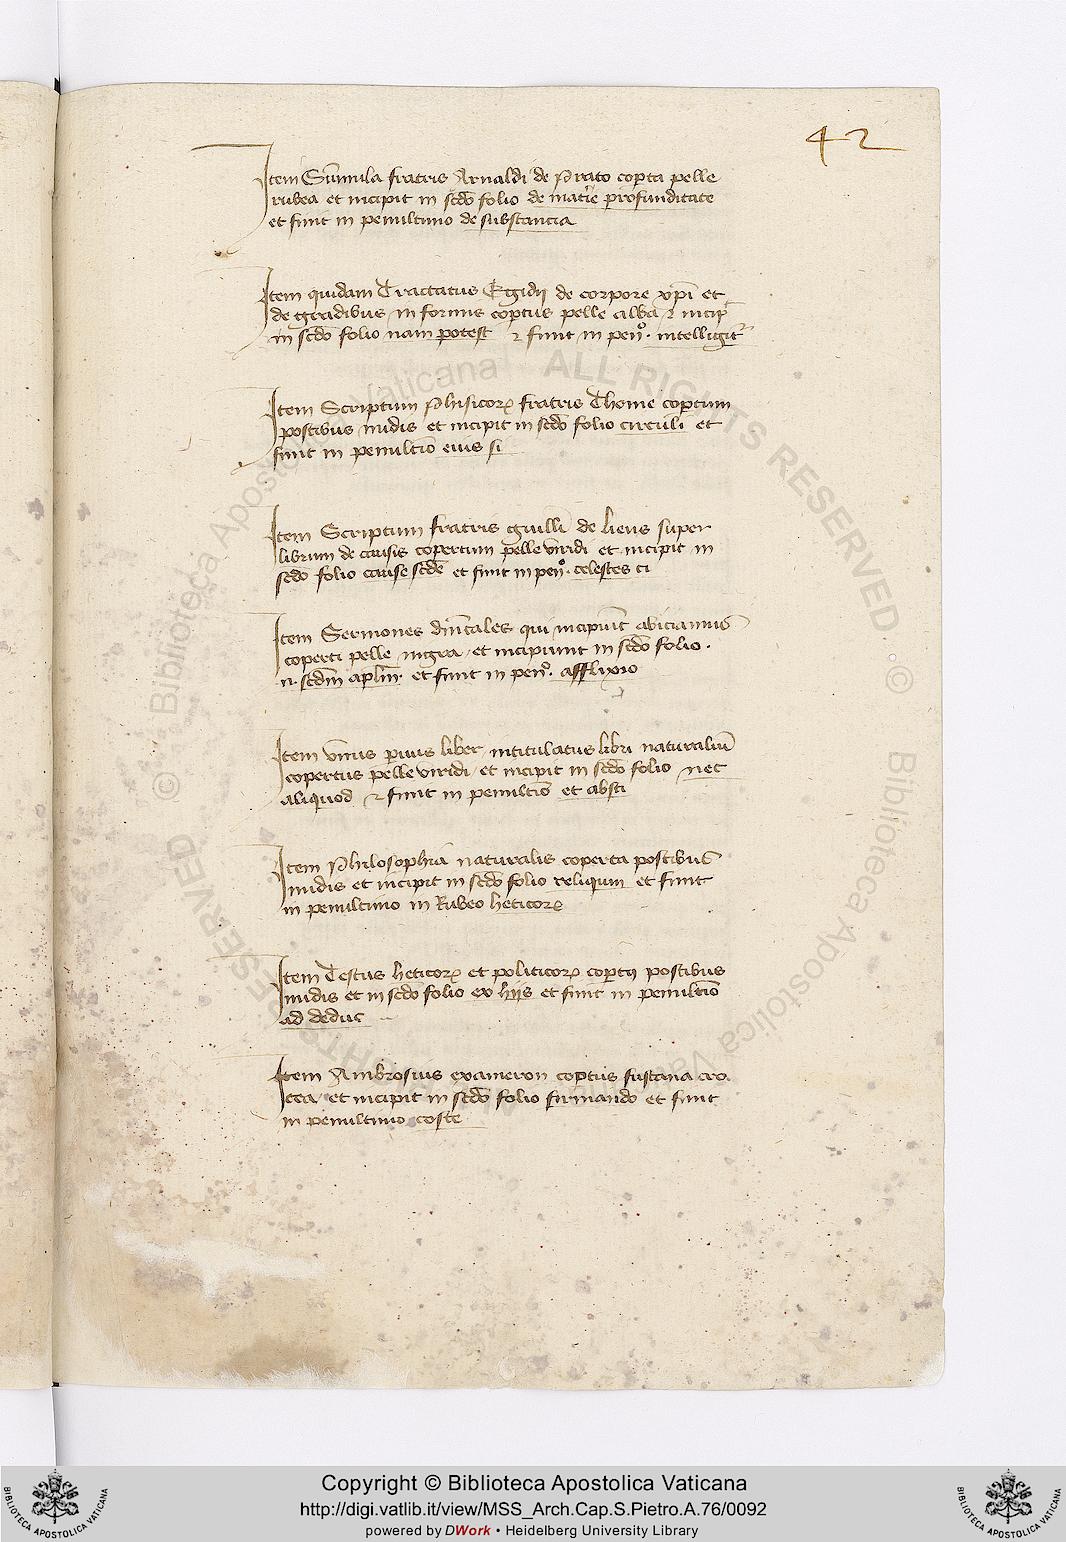 42
Item Sūmula fratris Arnaldi de Prato cop̄ta pelle
rubea et incipit in scdo folio de materie profunditate
et finit in penultimo de substancia
Item quidam Tractatus Egidij de corpore xp̄i et
de gradibus in formis cop̄tus pelle alba ⁊ incip̄
in scdo folio nam potest ⁊ finit in penº. intelligit̄
Item Scriptum Phisicoꝝ fratris Thome cop̄tum
postibus nudis et incipit in scdo folio circuli et
finit in penultiō eius si
Item Scriptum fratris guilli de liens super
librum de causis copertum pelle viridi et incipit in
scdo folio cause scde et finit in penº. celestes ci
Item Sermones dn̄icales qui incipiūt abiciamus
coperti pelle nigra et incipiunt in scdo folio.
n. scdm aplm̄. et finit in penº. afflixio
Item vnus paruus liber intitulatus libri naturaliū
copertus pelle viridi et incipit in scdo folio nec
aliquod ⁊ finit in penultiō et absti
Item Philosophia naturalis coperta postibus
nudis et incipit in scdo folio reliqum et finit
in penultimo in Rubeo heticoꝝ
Item Textus heticoꝝ et politicoꝝ cop̄tꝰ postibus
nudis et in scdo folio ex hijs et finit in penultiō
ad deduc
Item Ambrosius exameron cop̄tus fustana cro
cea et incipit in scdo folio firmando et finit
in penultimo coste
© Biblioteca Apostolica Vaticana ALL RIGHTS RESERVED
© Biblioteca Apostolica Vaticana ALL RIGHTS RESERVED
Copyright © Biblioteca Apostolica Vaticana
http://digi.vatlib.it/view/MSS_Arch.Cap.S.Pietro.A.76/0092
powered by DWork • Heidelberg University Library
BIBLIOTECA APOSTOLICA VATICANA
BIBLIOTECA APOSTOLICA VATICANA